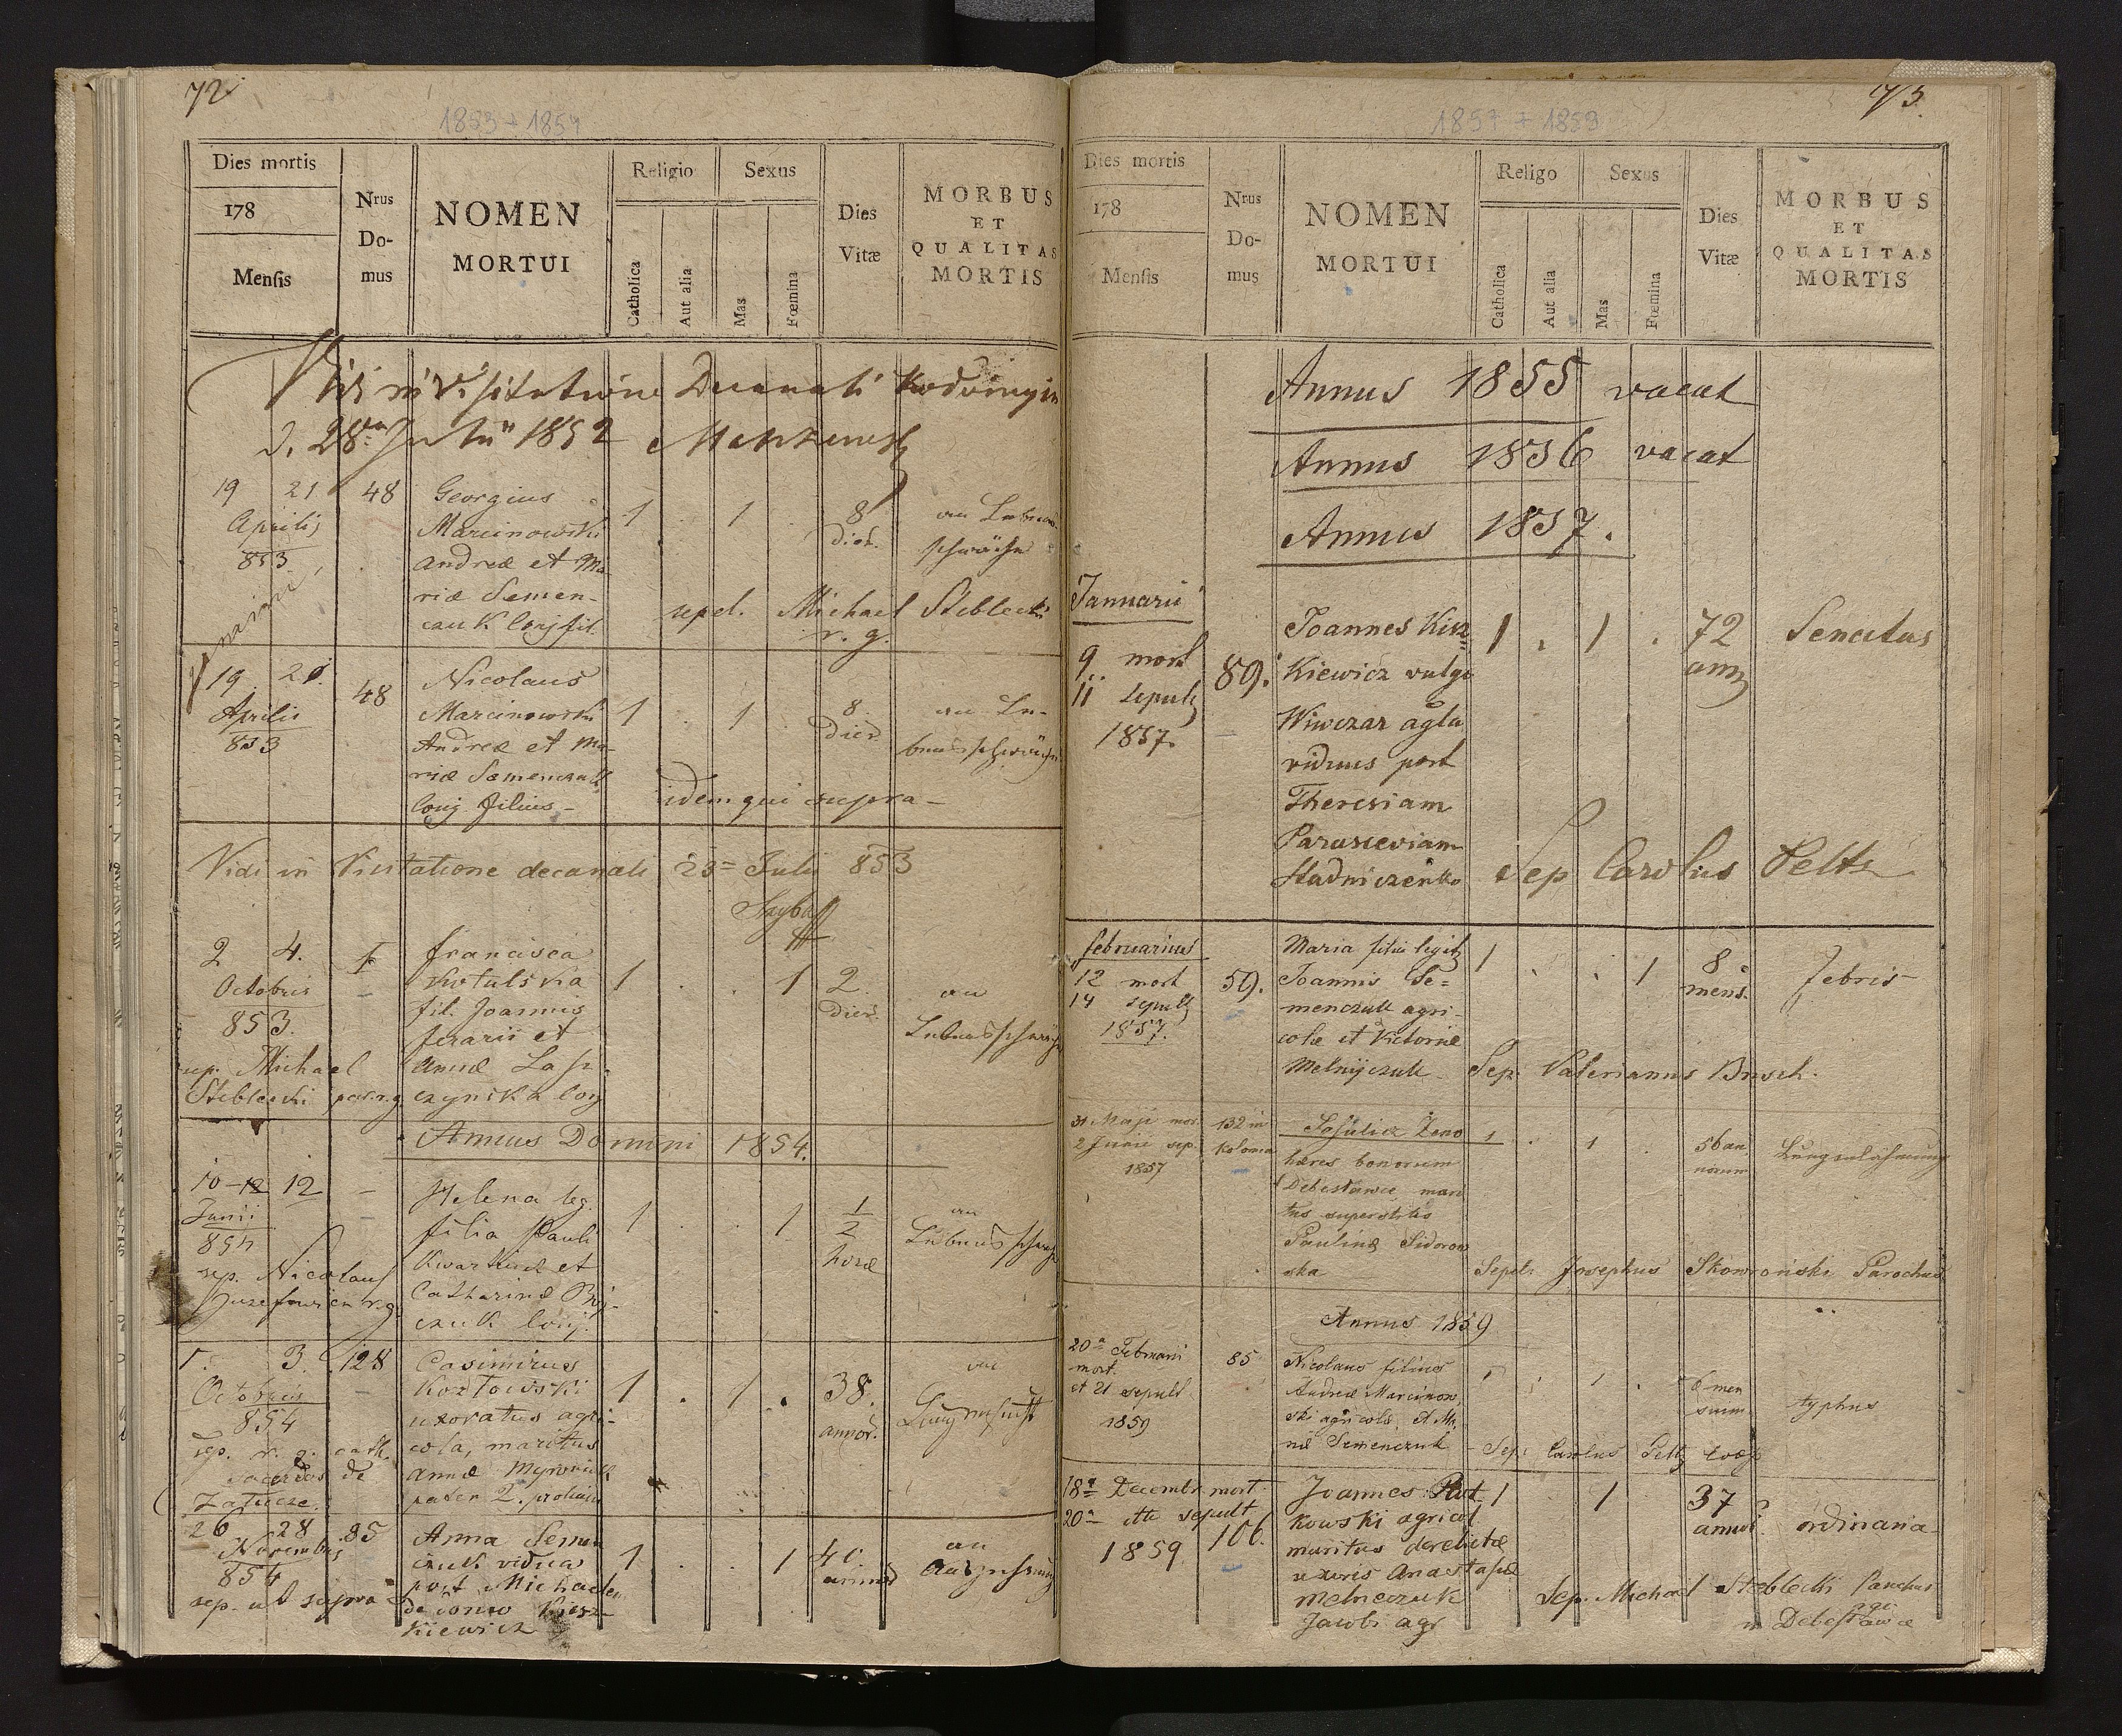 72
1853 + 1854
Dies mortis
178
Mensis
Nrus
Do-
mus
NOMEN
MORTUI
Religio
Catholica
Aut alia
Sexus
Mas
Fœmina
Dies
Vitæ
MORBUS
ET
QUALITAS
MORTIS
visitatione Decanali
d. 28va 1852
19 21
Aprilis
853
48
Georgius
Marcinowski
Andreæ et Ma-
riæ Semen-
cauk conj fil.
1 . 1 .
8
dier.
an Lebens
schwäche
sepel. Michael Steblecki
r. g.
19. 21.
Aprilis
853
48
Nicolaus
Marcinowski
Andreæ et Ma-
riæ Semenczuk
conj. filius -
1 . 1 .
8.
dier
an Le-
bensschwäche
idem qui supra -
Vidi in Visitatione decanali 23= Julii 853
2 4.
Octobris
853.
sep. Michael
Steblecki par. r. g.
1
francisca
Kotulska
fil. Joannis
ferarii et
Annæ Lasz-
czynska conj
1 . . 1
2.
dier.
an
Lebensschwäche
Annus Domini 1854.
10-12 12
Junii
854
sep. Nicolaus
Juzefowicz r. g.
-
Helena leg.
filia Pauli
Kwartiuk et
Catharinæ
czuk conj.
1 . . 1
1
2
horæ
an
Lebensschwäche
1. 3.
Octobris
854
sep. r. g. cath.
sacerdos de
128
Casimirus
Kozłowski
uxoratus agri-
cola, maritus
Annæ
pater 2. prolium
1 . 1 .
38.
annor.
an
Lungensucht
26 28
Novembris
854
sep. ut supra
85
Anna Semen
czuk vidua
post Michaelem
de domo Kisz-
kiewicz
1 . . 1
40
annor
an
Auszehrung
73.
1857 + 1859
Dies mortis
178
Mensis
Nrus
Do-
mus
NOMEN
MORTUI
Religo
Catholica
Aut alia
Sexus
Mas
Fœmina
Dies
Vitæ
MORBUS
ET
QUALITAS
MORTIS
Annus 1855 vacat
Annus 1856 vacat
Annus 1857.
Januarii
9 mort
11 sepult
1857.
89.
Joannes Kisz=
Kiewicz vulgo
Wiwczar agla
viduus post
Theresiam
Parasceviam
Stadniczenko
1 . 1 .
72
ann
Senectus
Sep Carolus Peltz
februarius
12 mort
14 sepult
1857.
59.
Maria filia legit
Joannis Se=
menczuk agri-
colæ et Victoriæ
Melnyczuk
1 . . 1
8
mens.
febris
Sep. Valerianus Brosch.
31 Maji mor.
2 Junii sep.
1857
132 in
Kolomea
Sasulicz Zeno
hæres bonorum
Debesławce mari
tus superstitis
Paulinæ Sidorow
ska
1 . 1 .
56 an
norum
Lungenlähmung
Sepel: Josephus Skowroński Parochus
Annus 1859
20a Februarii
mort.
et 21 sepult
1859
85
Nicolaus filius
Andreæ Marcinow
ski agricolæ et Ma
riæ Semenczuk
1 . 1 .
6 men
suum
typhus
Sep: Carolus Peltz coop
18a Decembr mort.
20a ctto sepult
1859
106.
Joannes Rut
kowski agricol
maritus derelictæ
uxoris Anastasiæ
Melneczuk
Jacobi agr
1 . 1
37
annor.
ordinaria
Sep. Michael Steblecki Parochus
in Debesławce